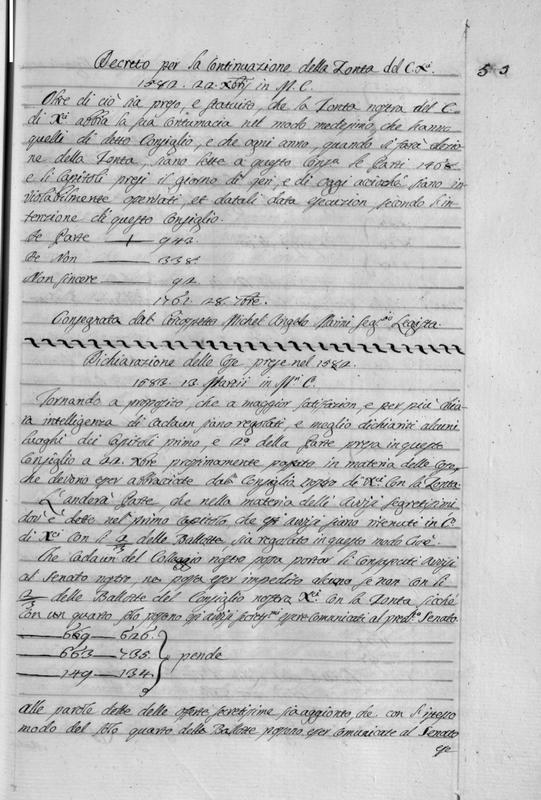 53
Decreto per la Continuazione della Zonta del C. Xci.
1582. 22. Xbre in M. C.
Oltre di ciò sia preso, e statuito, che la Zonta nostra del C.
di Xci abbia la sua contumacia nel modo medesimo, che hanno
quelli di detto Consiglio, e che ogni anno, quando si farà elezio
ne della Zonta, siano lette a questo Conso. le Parti 1468
e li Capitoli presi il giorno di jeri, e di oggi acciochè siano in
violabilmente osservati, et datali data esecuzion secondo l'in
tenzione di questo Consiglio.
De Parte — + — 943.
De Non — 338.
Non sincere — 92.
1761. 28. 7bre.
Consegnata dal Circospetto Michel Angelo Marini Segrio. Legista.
Dichiarazione delle Cose prese nel 1582.
1583. 13. Marzii in Mri C.
Tornando a proposito, che a maggior satisfazion, e per più chia
ra intelligenza di cadaun siano regolati, e meglio dichiariti alcuni
luoghi dei Capitoli primo e 2do della Parte presa in questo
Consiglio a 22. Xbre prossimamente passato in materia delle Cose,
che devono esser abbracciate dal Consiglio nostro di Xci con la Zonta.
L'anderà Parte che nella materia delli Avvisi segretissimi
dov'è detto nel primo Capitolo, che gli avvisi siano ritenuti in C.
di Xci con li 2/3 delle Ballotte sia regolato in questo modo Cioè.
Che cadaun del Collegio nostro possa portar li consueti Avvisi
al Senato nostro, ne possa esser impedito alcuno se non con li
2/3 delle Ballotte del Consiglio nostro Xci con la Zonta sicchè
con un quarto solo possono gli avvisi secretissmi essere comunicati al predto Senato.
— 669 — 626.
— 663 — 735. pende
— 149 — 134.
alle parole dette delle offerte secretissime sia aggionto, che con l'istesso
modo del solo quarto delle Ballotte possono esser comunicate al Senato